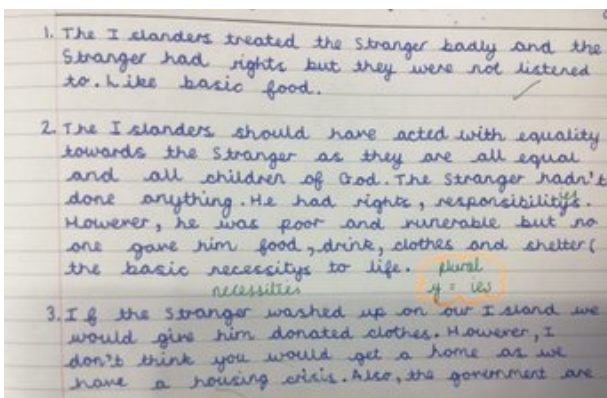 1. The Islanders treated the Stranger badly and the
Stranger had rights but they were not listened
to. Like basic food.
2. The Islanders should have acted with equality
towards the Stranger as they are all equal
and all children of God. The Stranger hadn't
ies
done anything. He had rights, responsibilitys.
However, he was poor and runerable but no
one gave him food, drink, clothes and shelter (
the basic necessitys to life. plural
necessities y = ies
3. If the Stranger washed up on our Island we
would give him donated clothes. However, I
don't think you would get a home as we
have a housing crisis. Also, the government are